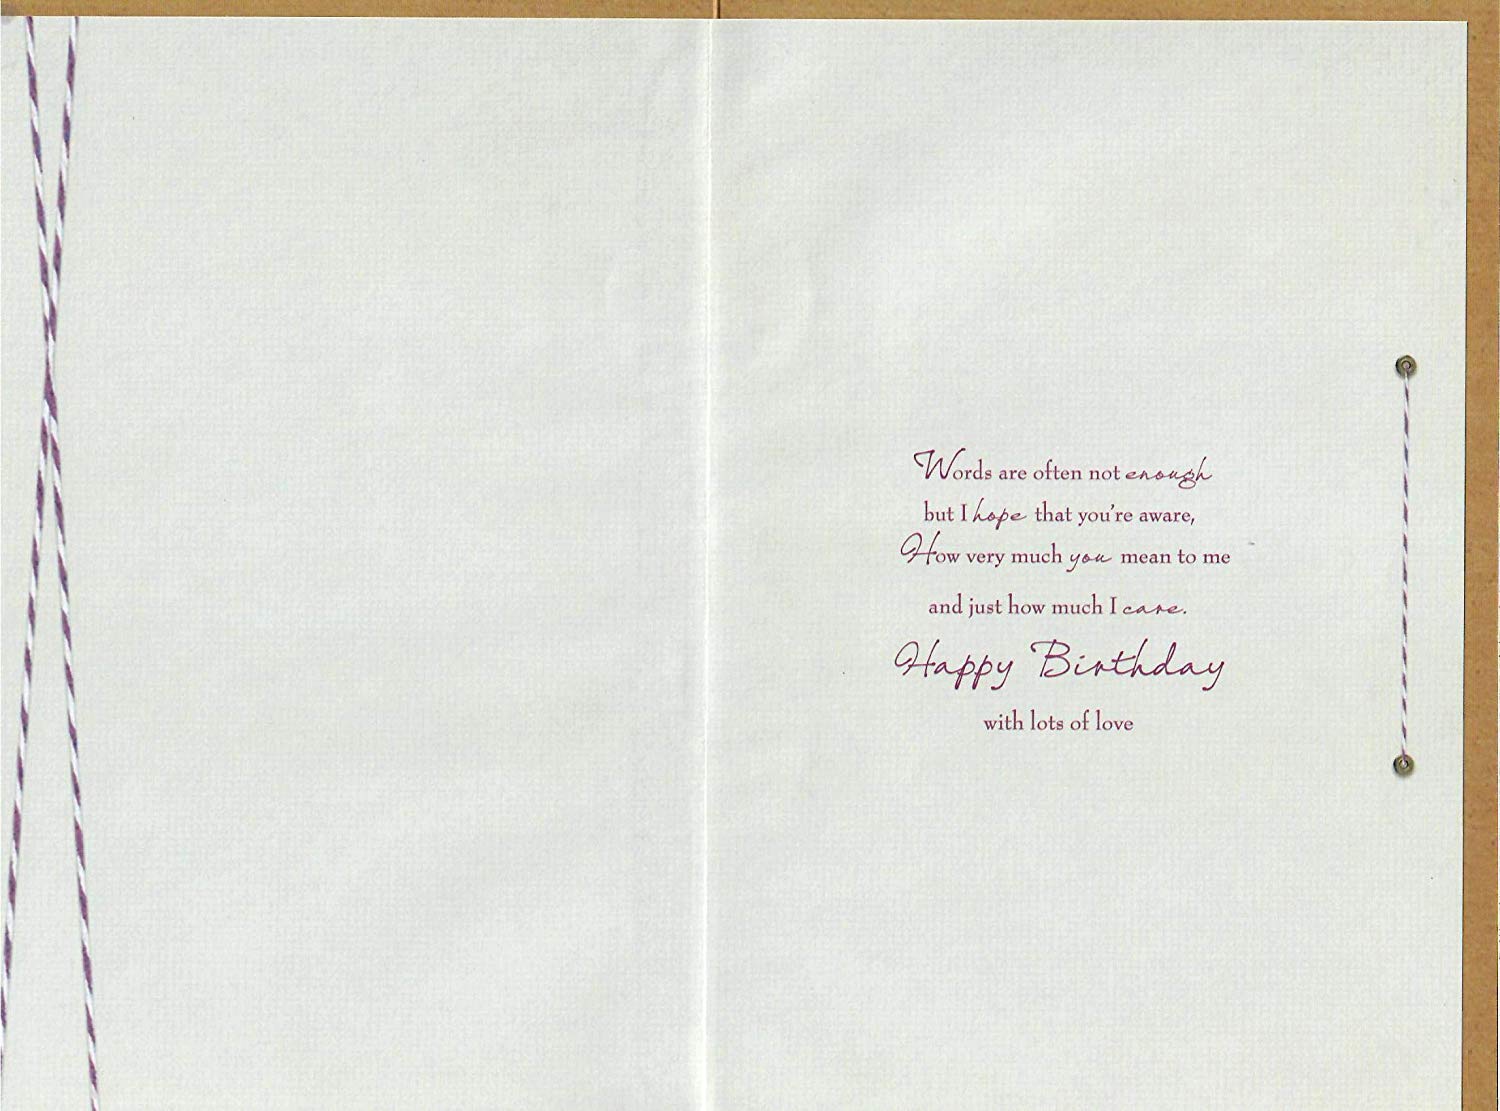 Words are often not enough
but I hope that you're aware,
How very much you mean to me
and just how much I care.
Happy Birthday
with lots of love